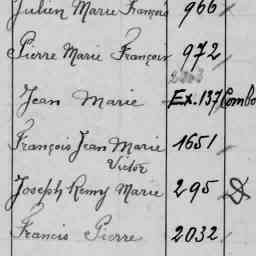 Julien Marie François 966
Pierre Marie François 972
Jean Marie Ex. 137 Combo
François Jean Marie 1651
Victor
Joseph Remy Marie 295
Francis Pierre 2032